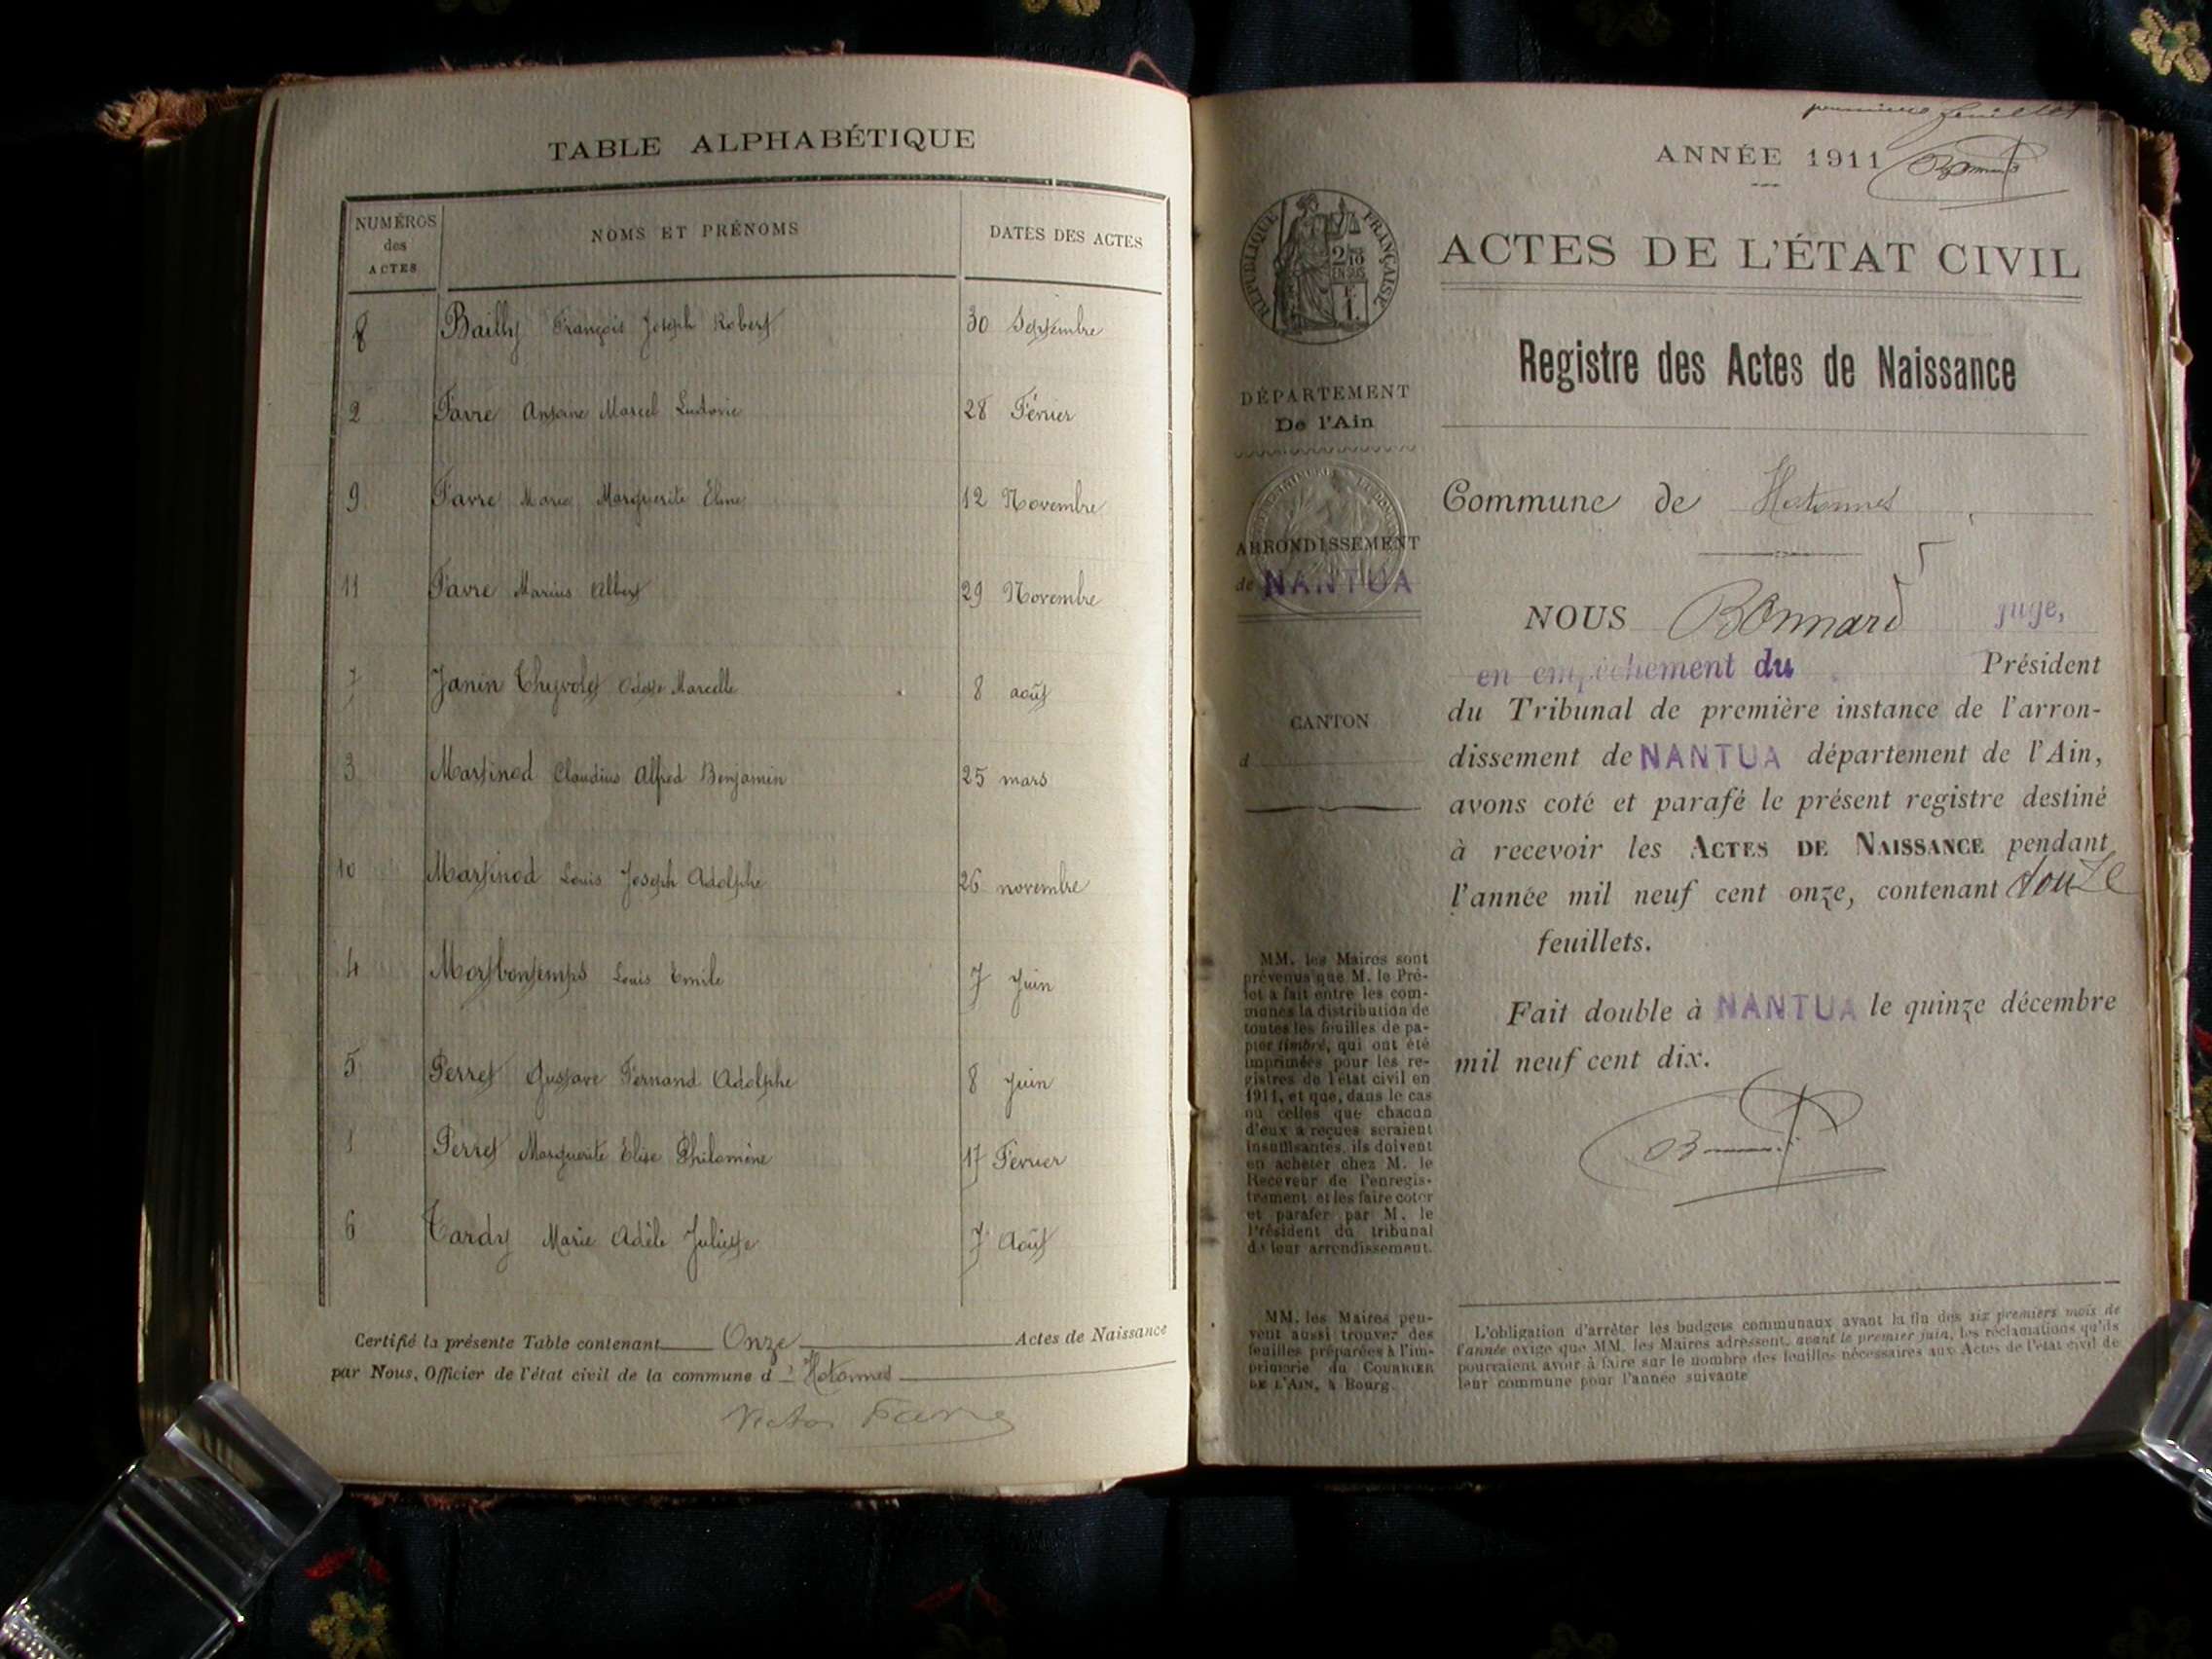 TABLE ALPHABÉTIQUE
NUMÉROS des ACTES NOMS ET PRÉNOMS DATES DES ACTES
8 Bailly François Joseph Robert 30 Septembre
2 Favre Antoine Marcel Ludovic 28 Février
9 Favre Marie Marguerite Eline 12 Novembre
11 Favre Marius Albert 29 Novembre
7 Janin Odette Marcelle 8 août
3 Martinod Claudius Alfred Benjamin 25 mars
10 Martinod Louis Joseph Adolphe 26 novembre
4 Mortbontemps Louis Emile 7 Juin
5 Perret Gustave Fernand Adolphe 8 Juin
1 Perret Marguerite Elise Philomène 17 Février
6 Tardy Marie Adèle Juliette 7 Août
Certifié la présente Table contenant Onze Actes de Naissance
par Nous, Officier de l'état civil de la commune d'Hotonnes
Victor Favre
premier feuillet
ANNÉE 1911
RÉPUBLIQUE FRANÇAISE
2/10 EN SUS
F. 1.
ACTES DE L'ÉTAT CIVIL
Registre des Actes de Naissance
DÉPARTEMENT
De l'Ain
ARRONDISSEMENT
de NANTUA
CANTON
d
Commune de Hotonnes
NOUS Bonnard juge,
en empêchement du Président
du Tribunal de première instance de l'arron-
dissement de NANTUA département de l'Ain,
avons coté et parafé le présent registre destiné
à recevoir les ACTES DE NAISSANCE pendant
l'année mil neuf cent onze, contenant douze
feuillets.
Fait double à NANTUA le quinze décembre
mil neuf cent dix.
MM. les Maires sont
prévenus que M. le Pré-
fet a fait entre les com-
munes la distribution de
toutes les feuilles de pa-
pier timbré, qui ont été
imprimées pour les re-
gistres de l'état civil en
1911, et que, dans le cas
où celles que chacun
d'eux a reçues seraient
insuffisantes, ils doivent
en acheter chez M. le
Receveur de l'enregis-
trement et les faire coter
et parafer par M. le
Président du tribunal
de leur arrondissement.
MM. les Maires peu-
vent aussi trouver des
feuilles préparées à l'im-
primerie du COURRIER
DE L'AIN, à Bourg.
L'obligation d'arrêter les budgets communaux avant la fin des six premiers mois de
l'année exige que MM. les Maires adressent, avant le premier juin, les réclamations qu'ils
pourraient avoir à faire sur le nombre des feuilles nécessaires aux Actes de l'état civil de
leur commune pour l'année suivante